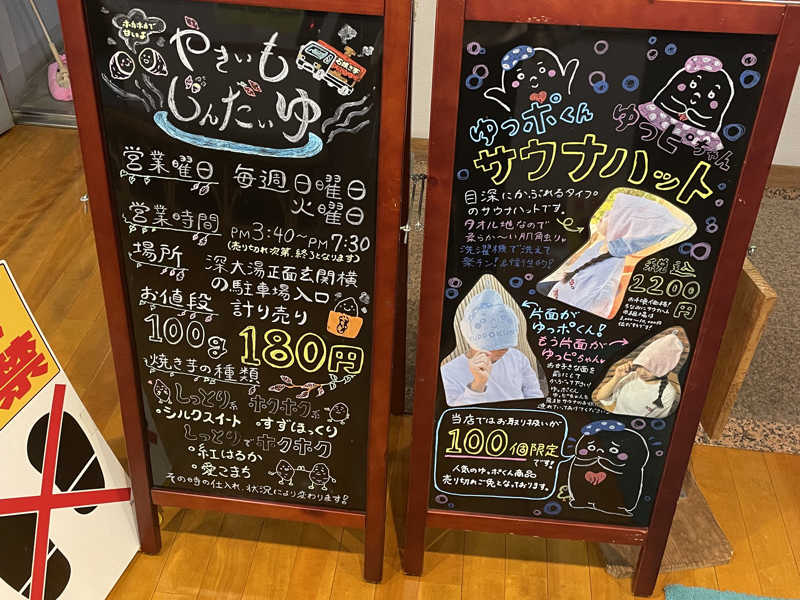 ホカホカで
甘いよ
やきいも
じんだい ゆ
営業曜日 毎週日曜日
火曜日
営業時間 PM3:40~PM7:30
(売り切れ次第、終了となります)
場所 深大湯正面玄関横
の駐車場入口
お値段 計り売り
100g 180円
焼き芋の種類
しっとり系 ホクホク系
・シルクスイート ・すずほっくり
しっとりでホクホク
・紅はるか
・愛こまち
その時の仕入れ、状況により変わります!
ゆっポくん
ゆっピちゃん
サウナハット
目深にかぶれるタイプ
のサウナハットです。
タオル地なので
柔らか〜い肌触り。
洗濯機で洗えて
楽チン!
税込
2200円
片面が
ゆっポくん!
もう片面が
ゆっピちゃん
お好きな面を
前にして
かぶって下さい
当店ではお取り扱いが
100個限定
です!
人気のゆっポくん商品
売り切れご免となっております。
禁